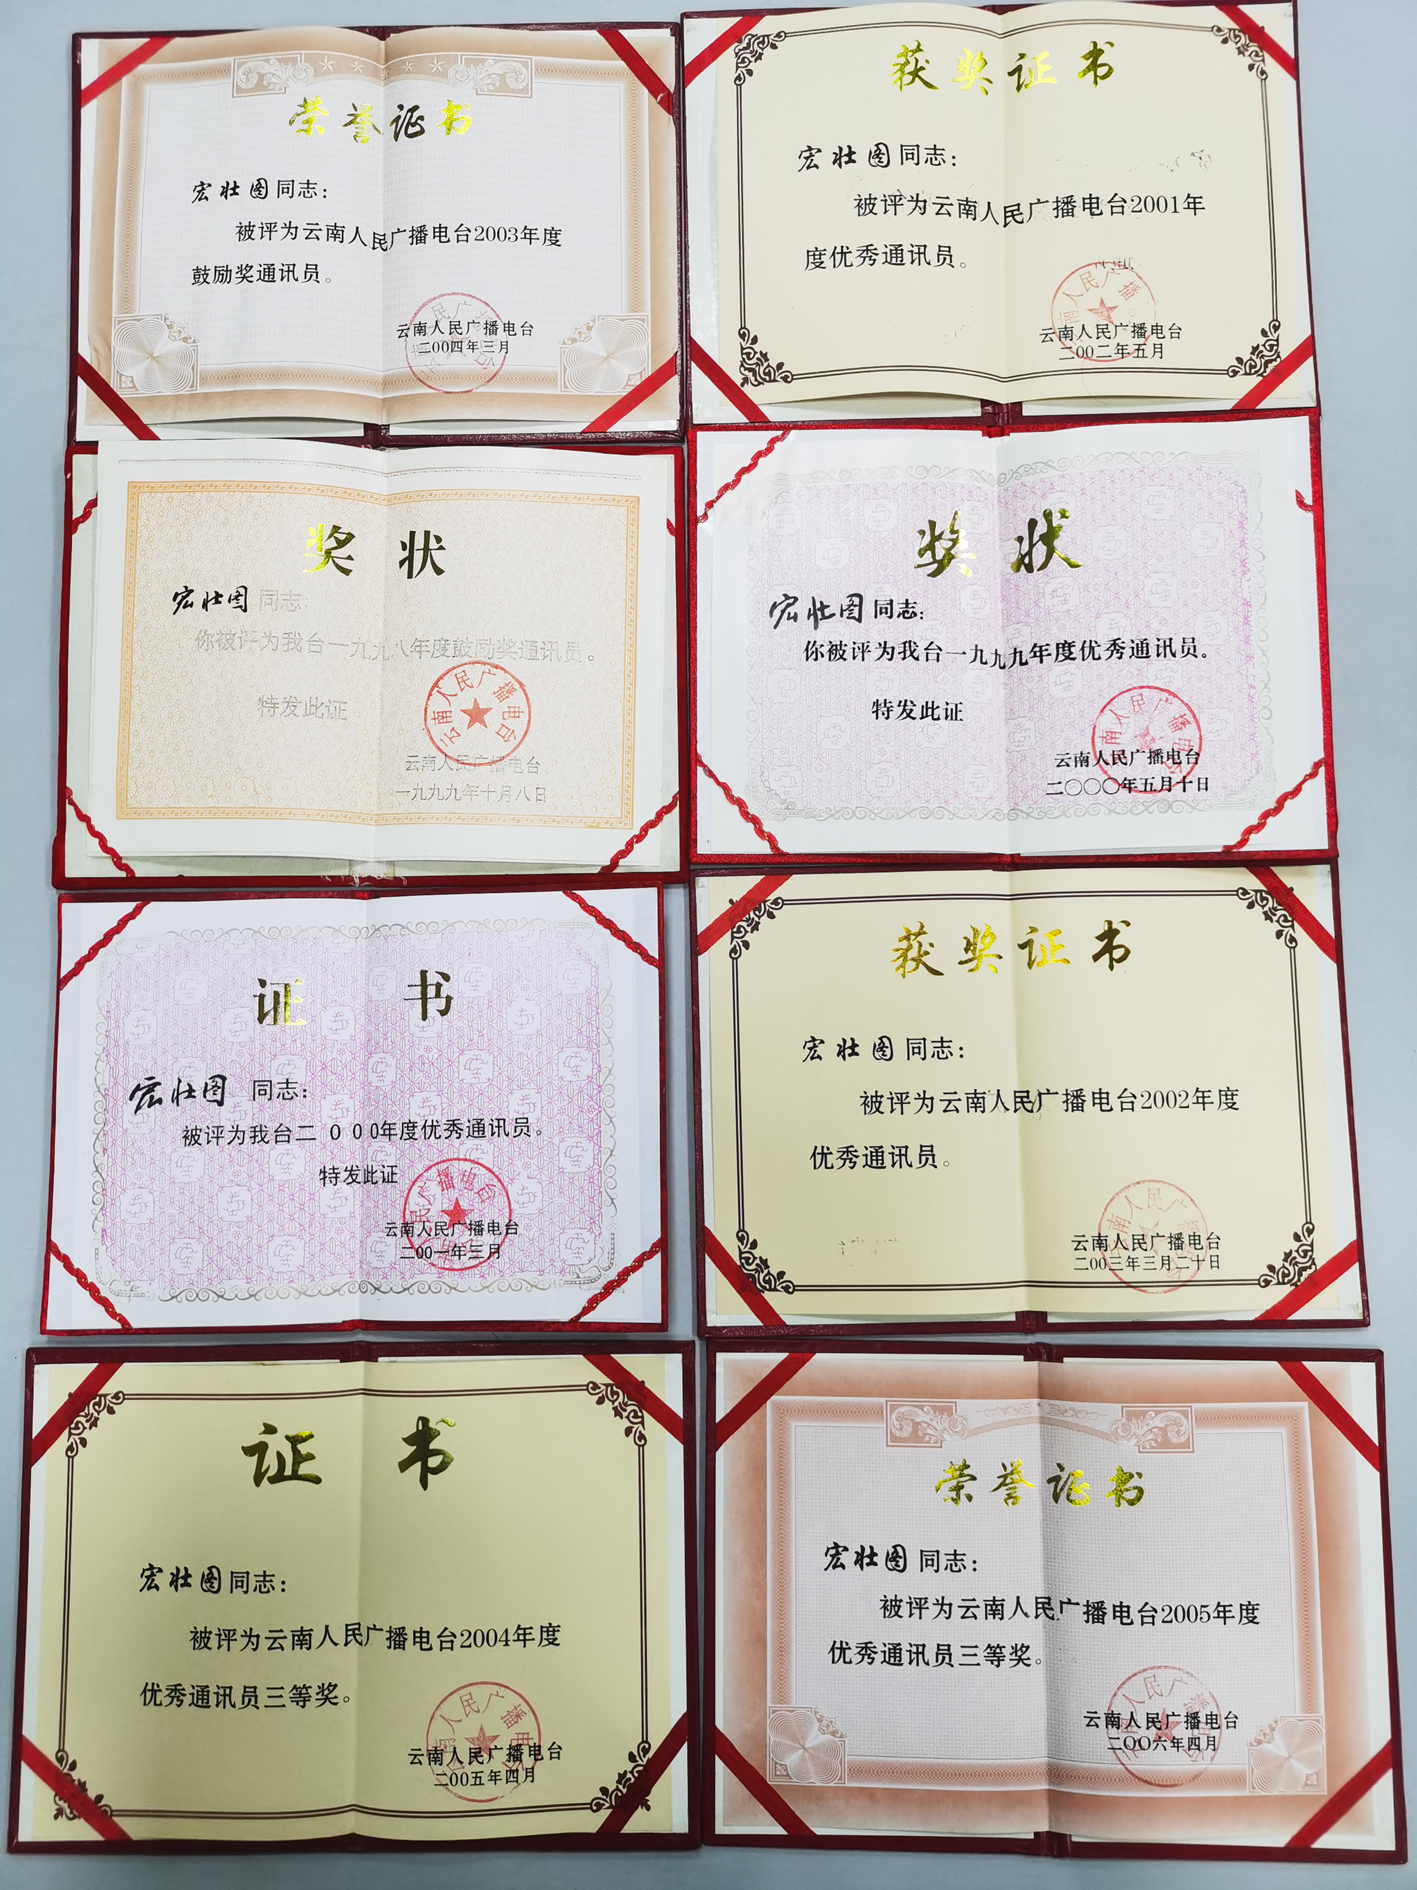 荣誉证书
宏壮图同志：
被评为云南人民广播电台2003年度
鼓励奖通讯员。
云南人民广播电台
二00四年三月
获奖证书
宏壮图同志：
被评为云南人民广播电台2001年
度优秀通讯员。
云南人民广播电台
二00二年五月
奖状
宏壮图同志：
你被评为我台一九九八年度鼓励奖通讯员。
特发此证
云南人民广播电台
云南人民广播电台
一九九九年十月八日
奖状
宏壮图同志：
你被评为我台一九九九年度优秀通讯员。
特发此证
云南人民广播电台
二〇〇〇年五月十日
证书
宏壮图 同志：
被评为我台二000年度优秀通讯员。
特发此证
云南人民广播电台
二00一年三月
获奖证书
宏壮图同志：
被评为云南人民广播电台2002年度
优秀通讯员。
云南人民广播电台
二00三年三月二十日
证书
宏壮图同志：
被评为云南人民广播电台2004年度
优秀通讯员三等奖。
云南人民广播电台
二00五年四月
荣誉证书
宏壮图同志：
被评为云南人民广播电台2005年度
优秀通讯员三等奖。
云南人民广播电台
二OO六年四月